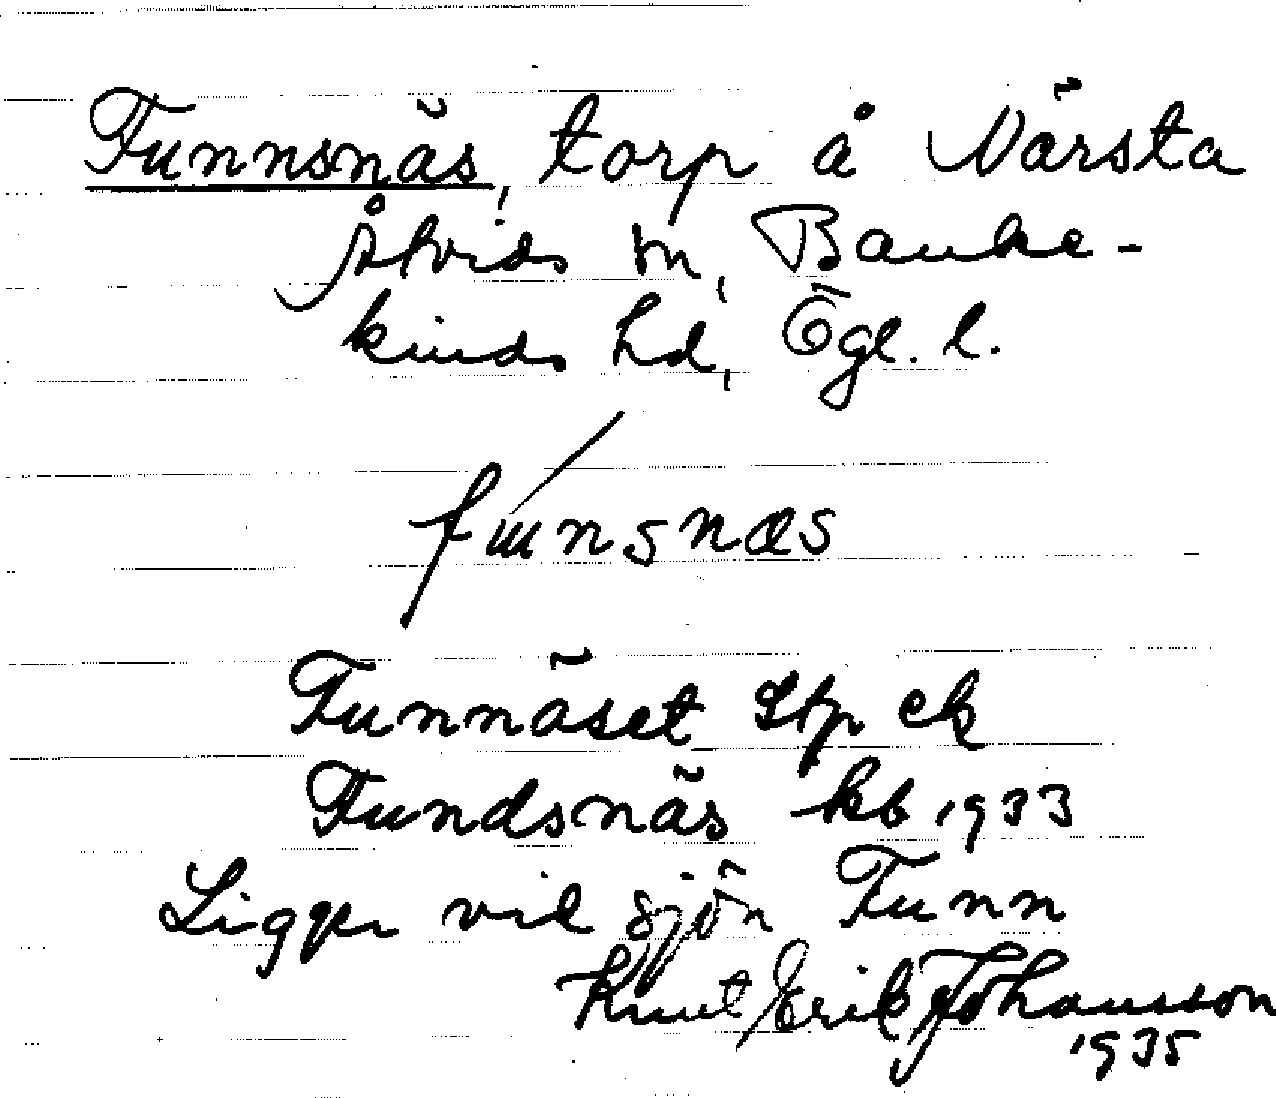 Funnsnäs, torp å Närsta
Åtvids sn, Banke-
kinds hd, Ögl. l.
Funnäset Stp ek
Fundsnäs kb 1933
Ligger vid sjön Funn
Knut Erik Johansson
1935